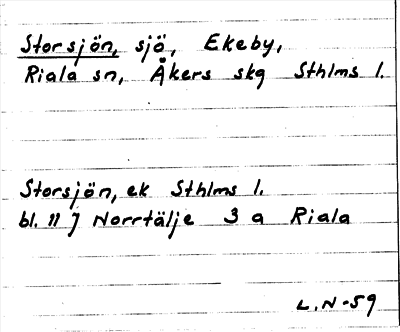 Storsjön, sjö, Ekeby,
Riala sn, Åkers skg Sthlms l.
Storsjön, ek Sthlms l.
bl. 11 J Norrtälje 3 a Riala
L.N-59